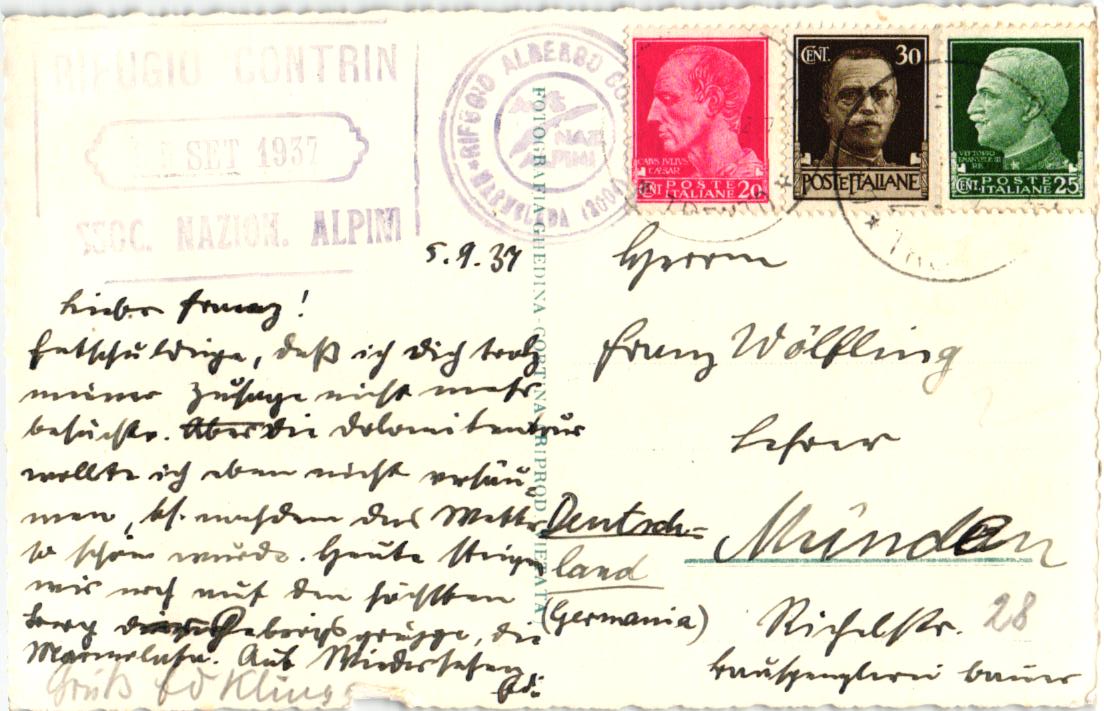 RIFUGIO CONTRIN
5 SET 1937
ASSOC. NAZION. ALPINI
RIFUGIO ALBERGO CO
NAZ
ALPINI
MARMOLADA (200
CAIVS IVLIVS
CAESAR
CENT POSTE
ITALIANE 20
CENT. 30
POSTE ITALIANE
VITTORIO
EMANUELE III
RE
CENT. POSTE
ITALIANE 25
5.9.37
Lieber Franz!
Entschuldige, daß ich Dich trotz
meiner Zusage nicht mehr
besuchte. Aber die Dolomitentour
wollte ich eben nicht versäu-
men, bs. nachdem das Wetter
so schön wurde. Heute steigen
wir noch auf den höchsten
Berg der Gebirgsgruppe, die
Marmolata. Auf Wiedersehen
Edi
Gruß
FOTOGRAFIA GHEDINA - CORTINA - RIPROD. VIETATA
Herrn
Franz Wölfling
Lehrer
München
Deutsch=
land
(Germania)
Richelstr. 28
Bauspenglerei Bauer